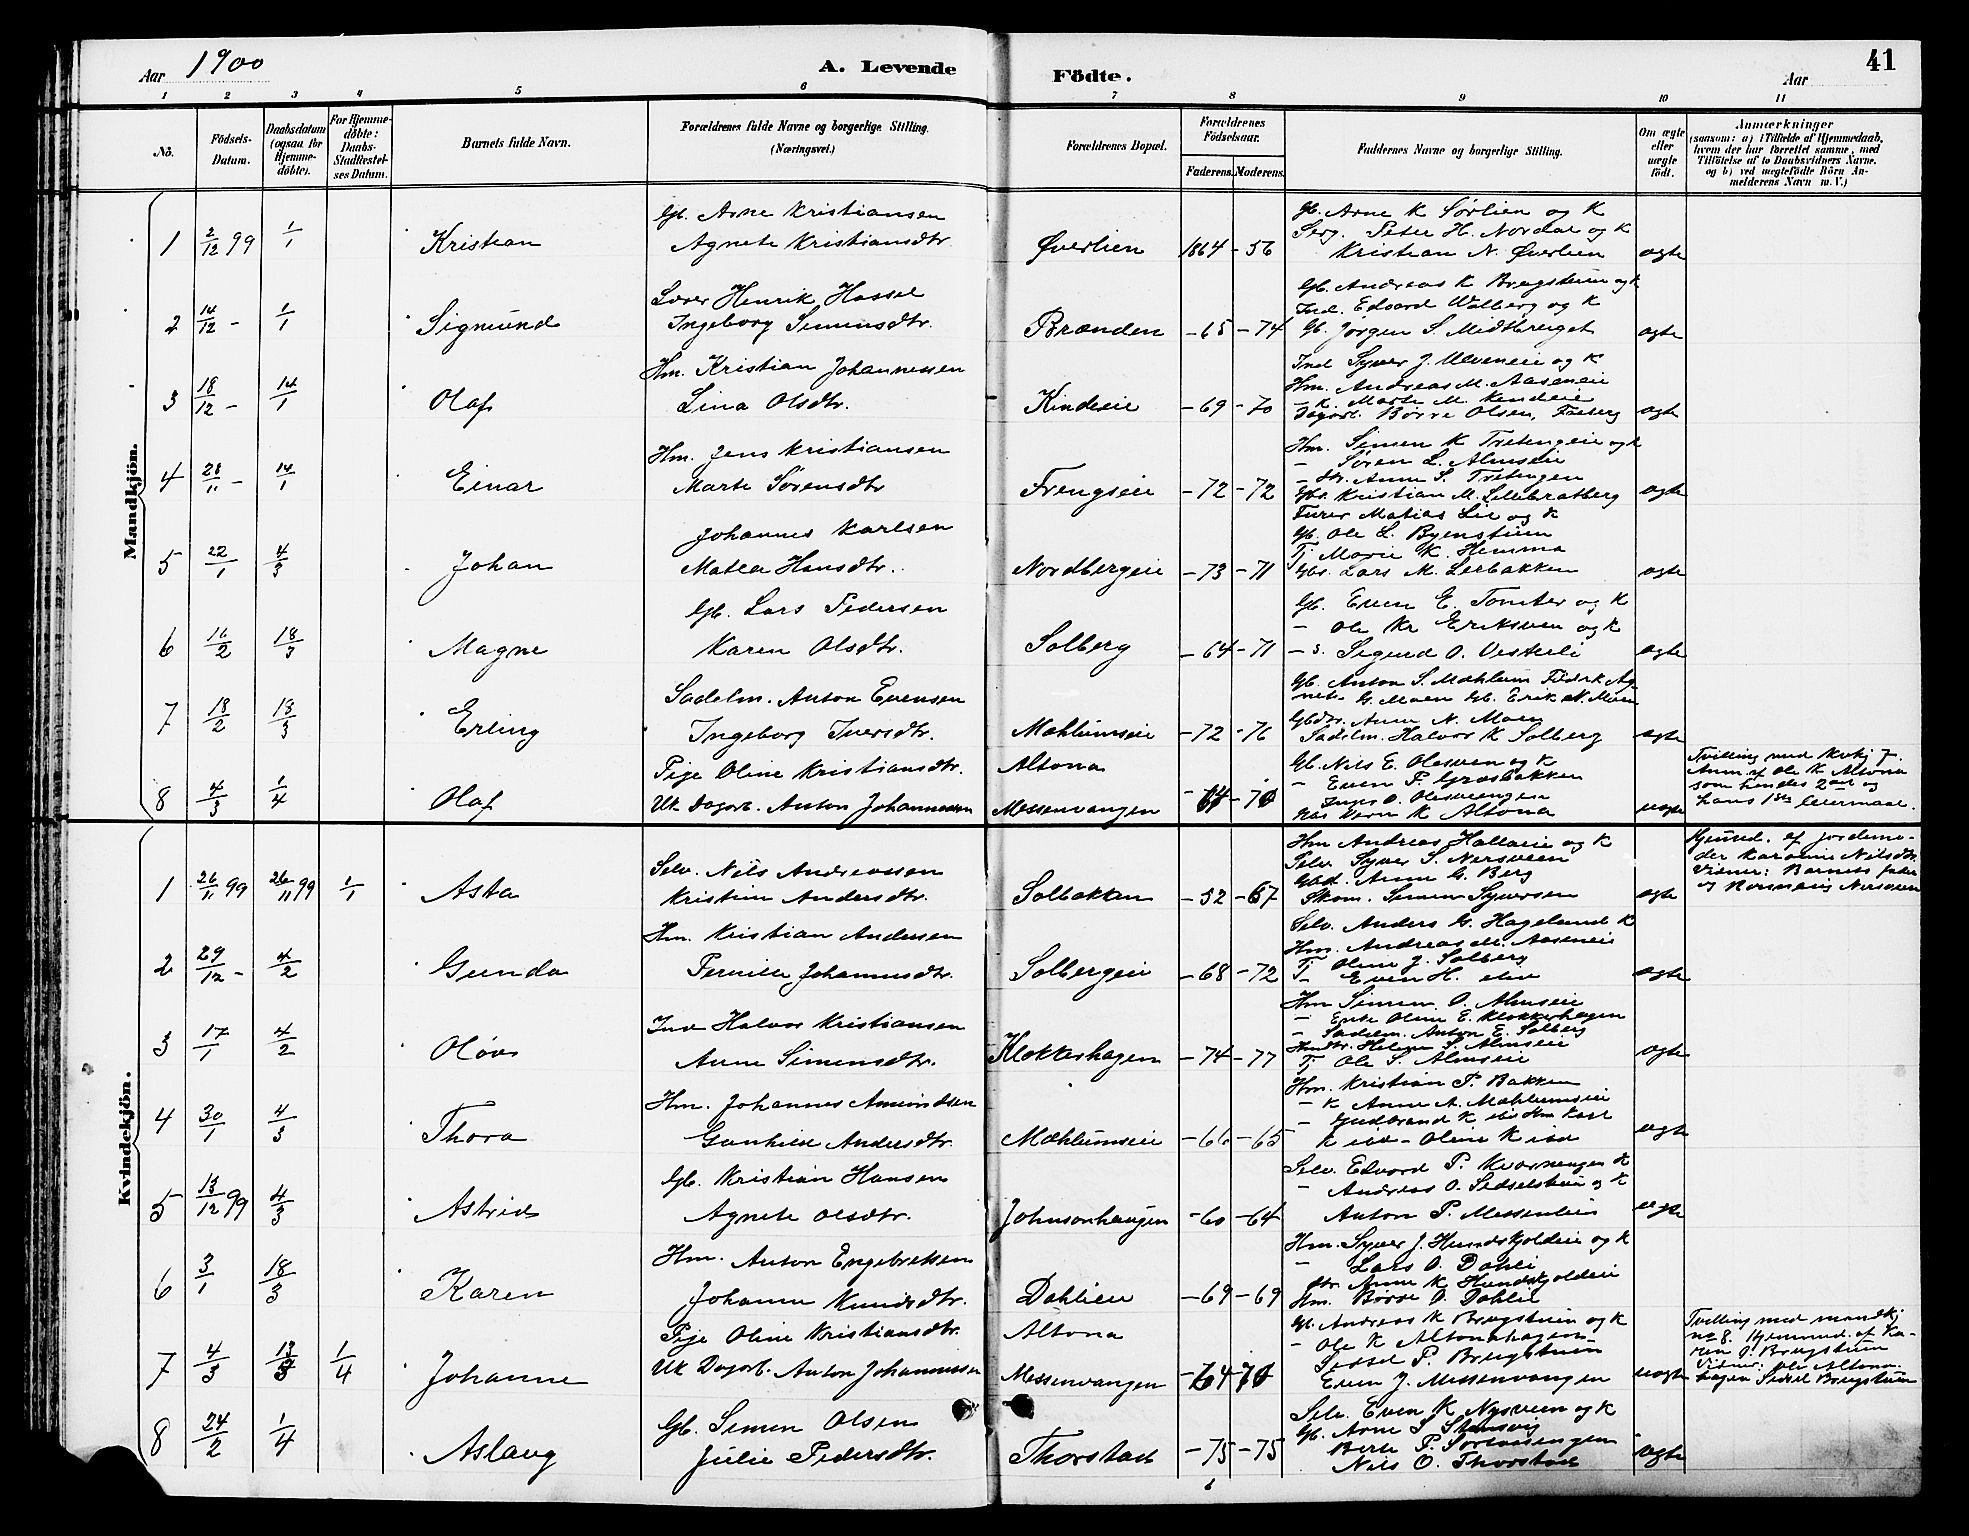 Aar 1900
A. Levende Födte.
Aar
41
1 2 3 4 5 6 7 8 9 10 11
Nō.
Födsels-Datum.
Daabsdatum (ogsaa for Hjemme-døbte).
For Hjemme-döbte: Daabs-Stadfæstel-ses Datum.
Barnets fulde Navn.
Forældrenes fulde Navne og borgerlige Stilling. (Næringsvei.)
Forældrenes Bopæl.
Forældrenes Födselsaar.
Faderens. Moderens.
Faddernes Navne og borgerlige Stilling.
Om ægte eller uægte födt.
Anmærkninger
(saasom: a) i Tilfælde af Hjemmedaab,
hvem der har forrettet samme, med
Tilföielse af to Daabsvidners Navne.
og b) ved uegtefödte Börn An-
melderens Navn m. V.)
Mandkjön.
1 2/12 99 1/1 Kristian
Gb. Arne Kristiansen
Agnete Kristiansdtr.
Øverlien 1864 - 56
Gb. Arne K Sørlien og K
Serg. Peter H. Nordal og K
Kristian N. Øverlien
ægte
2 14/12 - 1/1 Sigmund
Lærer Henrik Hassel
Ingeborg Simensdtr.
Brænden - 65 - 74
Gb. Andreas K Brugstuen og K
Ind. Edvard Walberg og K
Gb. Jørgen S. Midtberget
ægte
3 18/12 - 14/1 Olaf
Hm. Kristian Johannessen
Lina Olsdtr.
Kindeie - 69 - 70
Ind Syver J. Ulveneie og K
Hm. Andreas M. Aaseneie
- K Marte M. Kindeie
Dagarb. Børre Olsen, Faaberg
ægte
4 28/11 - 14/1 Einar
Hm. Jens Kristiansen
Marte Sørensdtr
Frengseie - 72 - 72
Hm. Simen K Tretengeie og K
- Søren L. Almseie
- dtr. Anne S. Tretengen
Gbs. Kristian M. Lillebratberg
ægte
5 22/1 4/3 Johan
Johannes Karlsen
Matea Hansdtr.
Nordbergeie - 73 - 71
Furer Matias Lie og K
Gb. Ole L. Byenstuen
Tj Marie K. Hemma
Gbs. Lars M. Lerbakken
ægte
6 16/2 18/3 Magne
Gb. Lars Pedersen
Karen Olsdtr.
Solberg - 64 - 71
Gb. Even E. Tomter og K
- Ole Kr Eriksven og K
- s. Sigurd O. Vesterli
ægte
7 18/2 18/3 Erling
Sadelm. Anton Evensen
Ingeborg Iversdtr.
Mæhlumseie - 72 - 76
Gb. Anton S. Mæhlum
G. Moen Gb. Erik N. Moen
Gbdtr. Anne N. Moen
Sadelm. Halvor K Solberg
ægte
8 4/3 1/4 Olaf
Pige Oline Kristiansdtr.
Uk Dagarb. Anton Johannessen
Altona
Messenvangen - 64 - 70
Gb. Nils E. Olesveen og K
- Even P. Græsbakken
K Altona
uægte
Tvilling med Kvkj 7.
Anm. af Ole K Altona
som hendes 2det og
hans 1ste leiermaal.
Kvindekjön.
1 26/11 99 26/11 99 1/1 Asta
Selv. Nils Andreassen
Kristine Andersdtr.
Solbakken - 52 - 67
Hm Andreas Hallaeie og K
Selv. Syver S. Nersveen
Gbd. Anne G. Berg
Skom. Simen Syversen
ægte
Hjemmed. af jordemo-
der Karoline Nilsdtr.
Vidner: Barnets fader
og Nersveen
2 29/12 - 4/2 Gunda
Hm. Kristian Andersen
Pernille Johannesdtr.
Solbergeie - 68 - 72
Selv. Anders G. Hagelund K
Hm. Andreas M. Aaseneie
Tj Oline J. Solberg
T- Even H. eie
ægte
3 17/1 4/2 Oløv
Ind Halvor Kristiansen
Anne Simensdtr.
Klokkerhagen - 74 - 77
Hm Simen O. Almseie
- Enke Oline E. Klokkerhagen
- Sadelm. Anton E. Solberg
Hmdtr. Helene S. Almseie
Tj Ole S. Almseie
ægte
4 30/1 4/3 Thora
Hm. Johannes Amundsen
Gunhild Andersdtr.
Mæhlumseie - 66 - 65
Hm. Kristian P. Bakken
- K Anne A. Mæhlumseie
- Gudbrand K
K ibd - Oline K ibd
ægte
5 13/12 99 4/3 Astrid
Gb. Kristian Hansen
Agnete Olsdtr.
Johnsonhaugen - 60 - 64
Selv. Edvard P. Kvernengen K
- Andreas O. Sidselstuen og K
Anton P. Messenlien
ægte
6 3/1 18/3 Karen
Hm. Anton Engebretsen
Johanne Knudsdtr.
Dahlieie - 69 - 69
Hm. Syver J. Hundskjoldeie og K
- Lars O. Dahli
dtr. Anne K Hundskjoldeie
Hm. Børre O. Dahlie
7 4/3 13/3 1/4 Johanne
Pige Oline Kristiansdtr.
Uk Dagarb. Anton Johannessen
Altona
Messenvangen - 64 - 70
Gb. Andreas K Brugstuen og K
- Ole K Altonahagen
Sidsel P. Brugstuen
Even J. Messenvangen
uægte
Tvilling med mandkj
no 8. Hjemmed. af Ka-
ren O. Brugstuen
Vidner: Ole Altona-
hagen Sidsel Brugstuen
8 24/2 1/4 Aslaug
Gb. Simen Olsen
Julie Pedersdtr.
Thorstad - 75 - 75
Selv. Even K Nysveen og K
Gb. Arne S Stensvig
Berte P.
Nils O. Thorstad
ægte